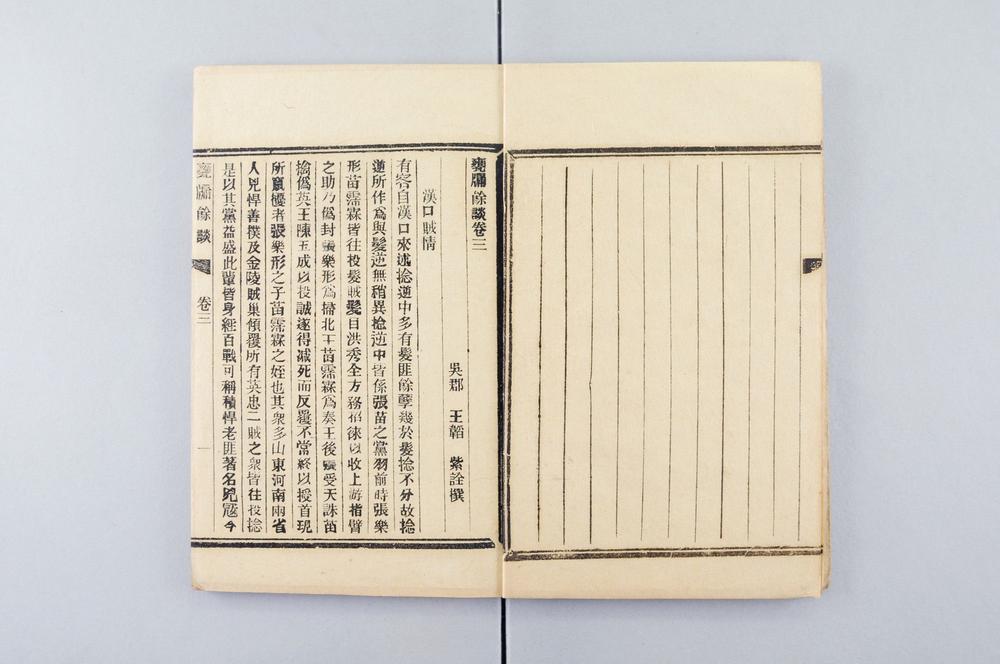 甕牖餘談卷三
吳郡 王韜 紫詮撰
漢口賊情
有客自漢口來述捻逆中多有髮匪餘孽幾於髮捻不分故捻
逆所作爲與髮逆無稍異捻逆中皆係張苗之黨羽前時張樂
形苗霈霖皆往投髮賊髮目洪秀全方務招徠以收上游指臂
之助乃僞封張樂形爲掃北王苗霈霖爲奏王後張受天誅苗
擒僞英王陳玉成以投誠遂得減死而反覆不常終以授首現
所竄擾者張樂形之子苗霈霖之姪也其衆多山東河南兩省
人兇悍善撲及金陵賊巢傾覆所有英忠二賊之衆皆往投捻
是以其黨益盛此輩皆身經百戰可稱積悍老匪著名兇寇今
甕牖餘談 卷三 一